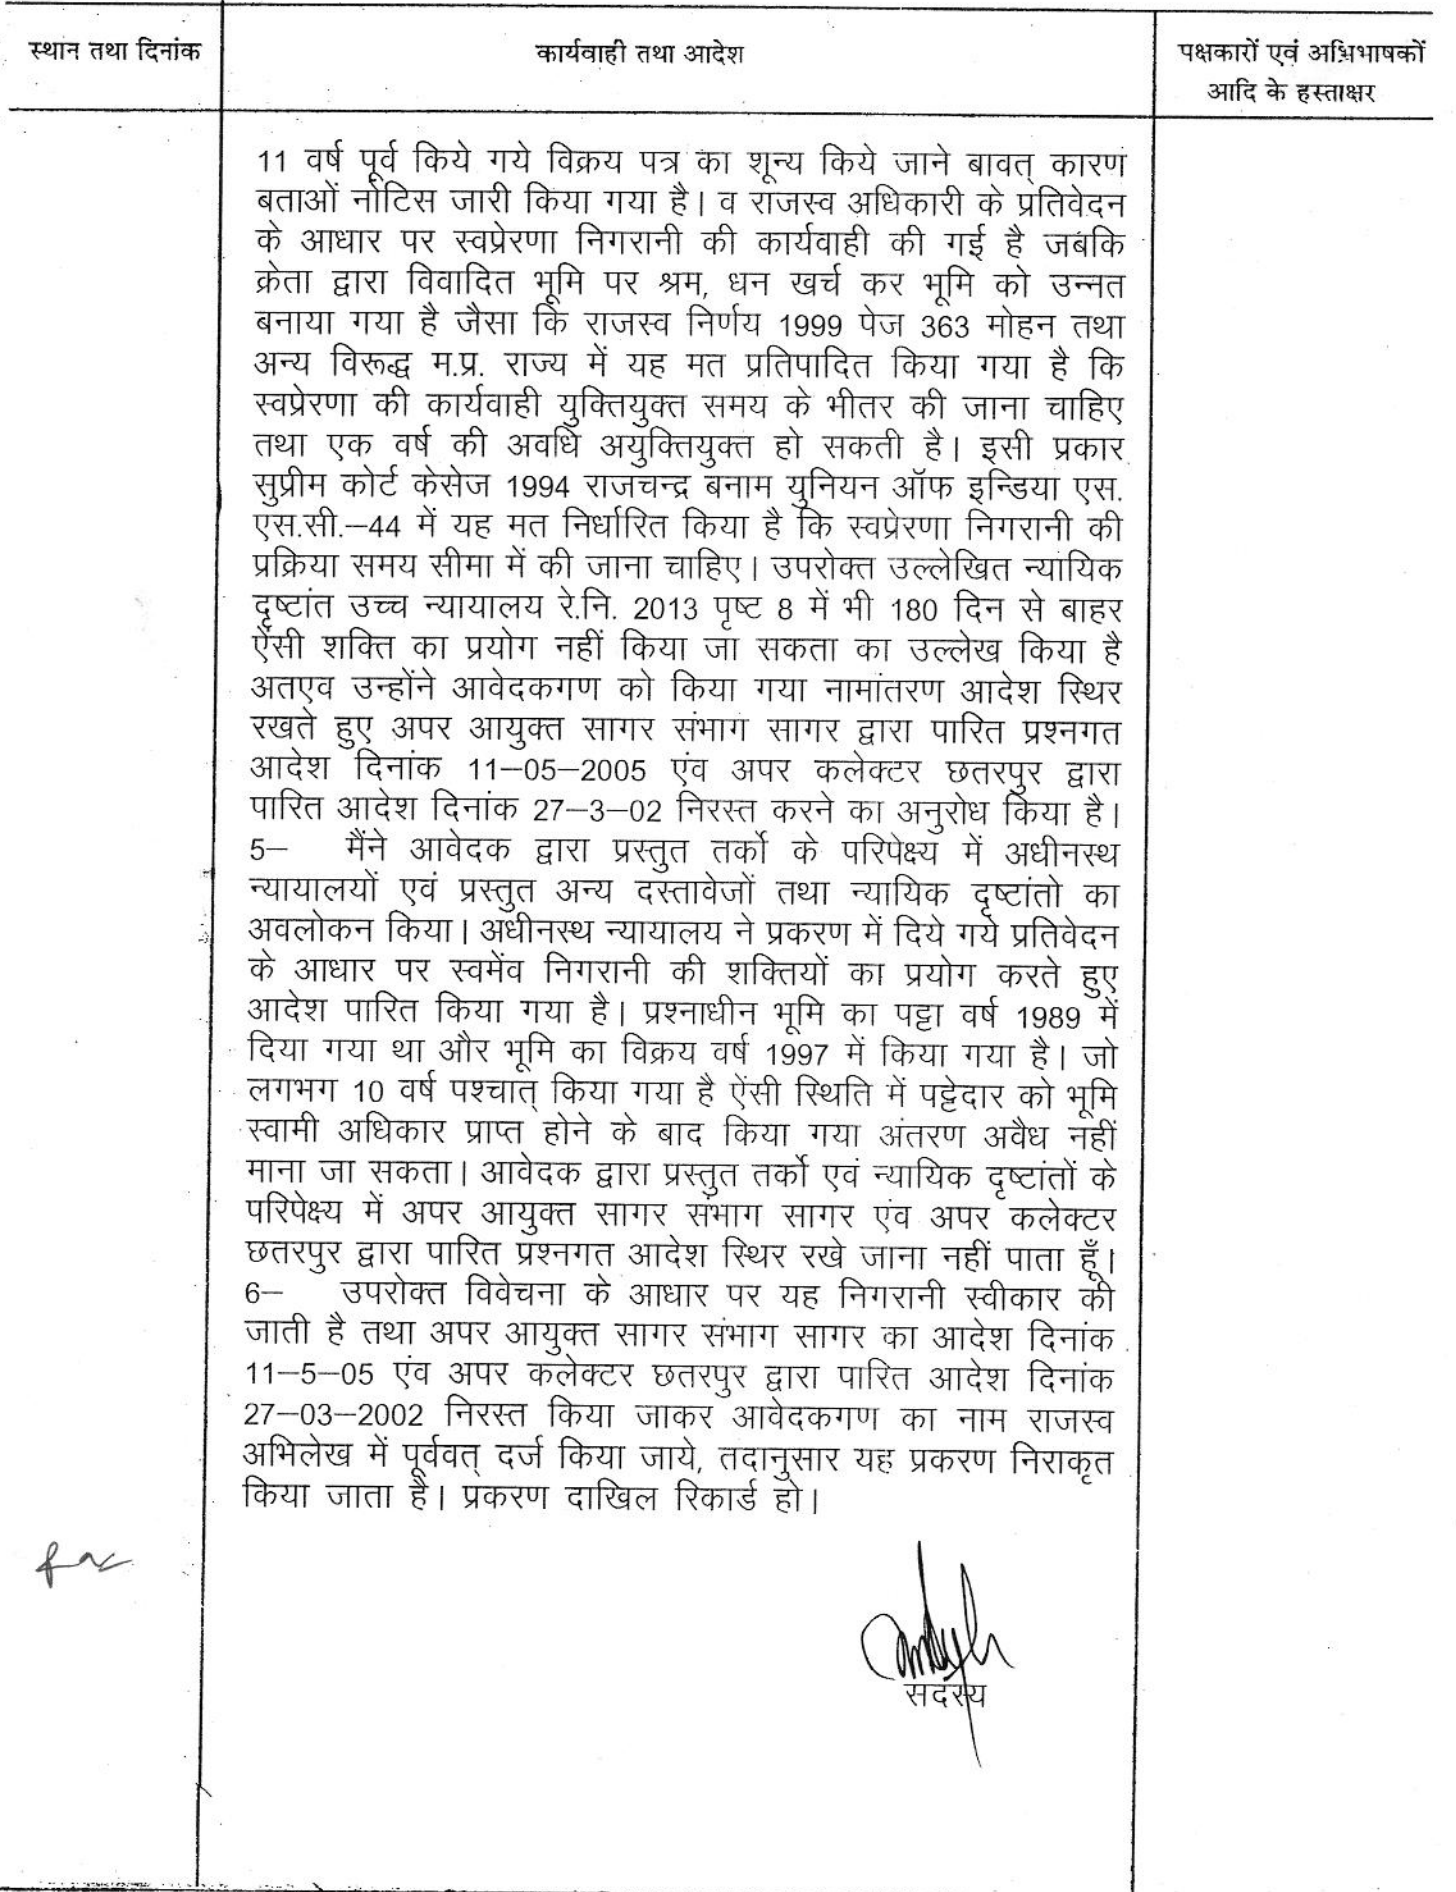 स्थान तथा दिनांक
कार्यवाही तथा आदेश
पक्षकारों एवं अभिभाषकों
आदि के हस्ताक्षर
11 वर्ष पूर्व किये गये विक्रय पत्र का शून्य किये जाने बावत् कारण
बताओं नोटिस जारी किया गया है। व राजस्व अधिकारी के प्रतिवेदन
के आधार पर स्वप्रेरणा निगरानी की कार्यवाही की गई है जबकि
क्रेता द्वारा विवादित भूमि पर श्रम, धन खर्च कर भूमि को उन्नत
बनाया गया है जैसा कि राजस्व निर्णय 1999 पेज 363 मोहन तथा
अन्य विरूद्ध म.प्र. राज्य में यह मत प्रतिपादित किया गया है कि
स्वप्रेरणा की कार्यवाही युक्तियुक्त समय के भीतर की जाना चाहिए
तथा एक वर्ष की अवधि अयुक्तियुक्त हो सकती है। इसी प्रकार
सुप्रीम कोर्ट केसेज 1994 राजचन्द्र बनाम युनियन ऑफ इन्डिया एस.
एस.सी.–44 में यह मत निर्धारित किया है कि स्वप्रेरणा निगरानी की
प्रक्रिया समय सीमा में की जाना चाहिए। उपरोक्त उल्लेखित न्यायिक
दृष्टांत उच्च न्यायालय रे.नि. 2013 पृष्ट 8 में भी 180 दिन से बाहर
ऐंसी शक्ति का प्रयोग नहीं किया जा सकता का उल्लेख किया है
अतएव उन्होंने आवेदकगण को किया गया नामांतरण आदेश स्थिर
रखते हुए अपर आयुक्त सागर संभाग सागर द्वारा पारित प्रश्नगत
आदेश दिनांक 11–05–2005 एंव अपर कलेक्टर छतरपुर द्वारा
पारित आदेश दिनांक 27–3–02 निरस्त करने का अनुरोध किया है।
5– मैंने आवेदक द्वारा प्रस्तुत तर्को के परिपेक्ष्य में अधीनस्थ
न्यायालयों एवं प्रस्तुत अन्य दस्तावेजों तथा न्यायिक दृष्टांतो का
अवलोकन किया। अधीनस्थ न्यायालय ने प्रकरण में दिये गये प्रतिवेदन
के आधार पर स्वमेंव निगरानी की शक्तियों का प्रयोग करते हुए
आदेश पारित किया गया है। प्रश्नाधीन भूमि का पट्टा वर्ष 1989 में
दिया गया था और भूमि का विक्रय वर्ष 1997 में किया गया है। जो
लगभग 10 वर्ष पश्चात् किया गया है ऐंसी स्थिति में पट्टेदार को भूमि
स्वामी अधिकार प्राप्त होने के बाद किया गया अंतरण अवैध नहीं
माना जा सकता। आवेदक द्वारा प्रस्तुत तर्को एवं न्यायिक दृष्टांतों के
परिपेक्ष्य में अपर आयुक्त सागर संभाग सागर एंव अपर कलेक्टर
छतरपुर द्वारा पारित प्रश्नगत आदेश स्थिर रखे जाना नहीं पाता हूँ।
6– उपरोक्त विवेचना के आधार पर यह निगरानी स्वीकार की
जाती है तथा अपर आयुक्त सागर संभाग सागर का आदेश दिनांक
11–5–05 एंव अपर कलेक्टर छतरपुर द्वारा पारित आदेश दिनांक
27–03–2002 निरस्त किया जाकर आवेदकगण का नाम राजस्व
अभिलेख में पूर्ववत् दर्ज किया जाये, तदानुसार यह प्रकरण निराकृत
किया जाता है। प्रकरण दाखिल रिकार्ड हो।
सदस्य